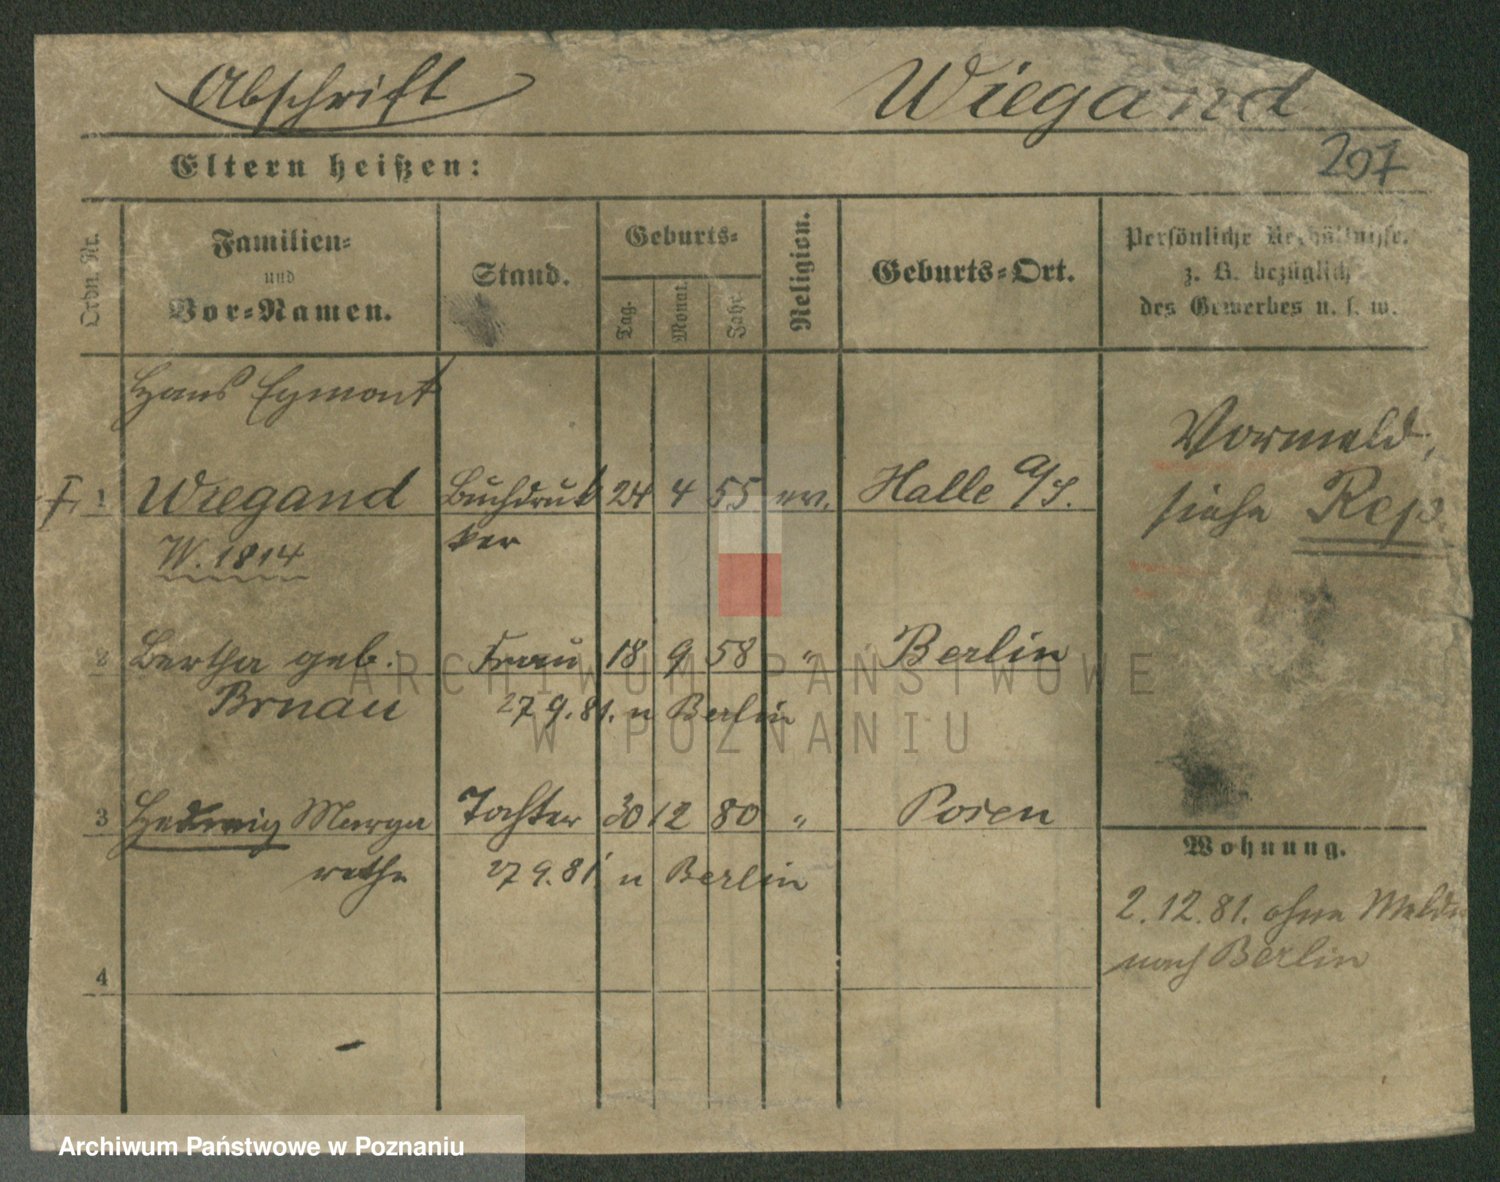 Abschrift
Wiegand
Eltern heißen:
207
Ordn. Nr.
Familien-
und
Vor-Namen.
Stand.
Geburts-
Tag.
Monat.
Jahr.
Religion.
Geburts-Ort.
Persönliche Verhältnisse.
z. B. bezüglich
des Gewerbes u. s. w.
Hans Egmont
1 Wiegand Buchdruk 24 4 55 ev. Halle a/S.
ker
W. 1814
Vormeld.
siehe Rep.
2 Bertha geb. Frau 18 9 58 " Berlin
27 9. 81. n Berlin
3 Hedwig Marga Tochter 30 12 80 " Posen
rethe 27 9. 81 n Berlin
Wohnung.
2. 12. 81. ohne
nach Berlin
4
ARCHIWUM PAŃSTWOWE
W POZNANIU
Archiwum Państwowe w Poznaniu